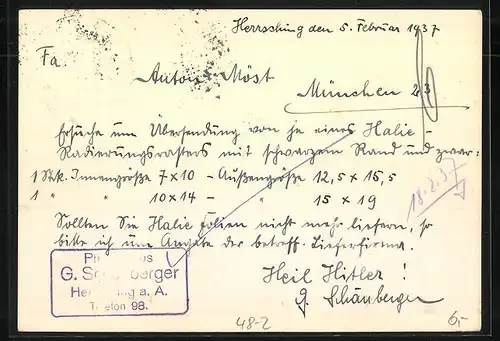 Herrsching den 5. Februar 1937
Fa.
Anton Möst
München 23
Ersuche um Übersendung von je eines Halic-
Radierungsrasters mit schwarzem Rand und zwar:
1 Stk. Innengröße 7 x 10 - Außengröße 12,5 x 15,5
1 " " 10 x 14 - " 15 x 19
18.2.37
Sollten Sie Halic folien nicht mehr liefern, so
bitte ich um Angabe der betreff. Lieferfirma.
Heil Hitler !
G. Schänberger
G. berger
a. A.
Telefon 98.
48-2
6,-